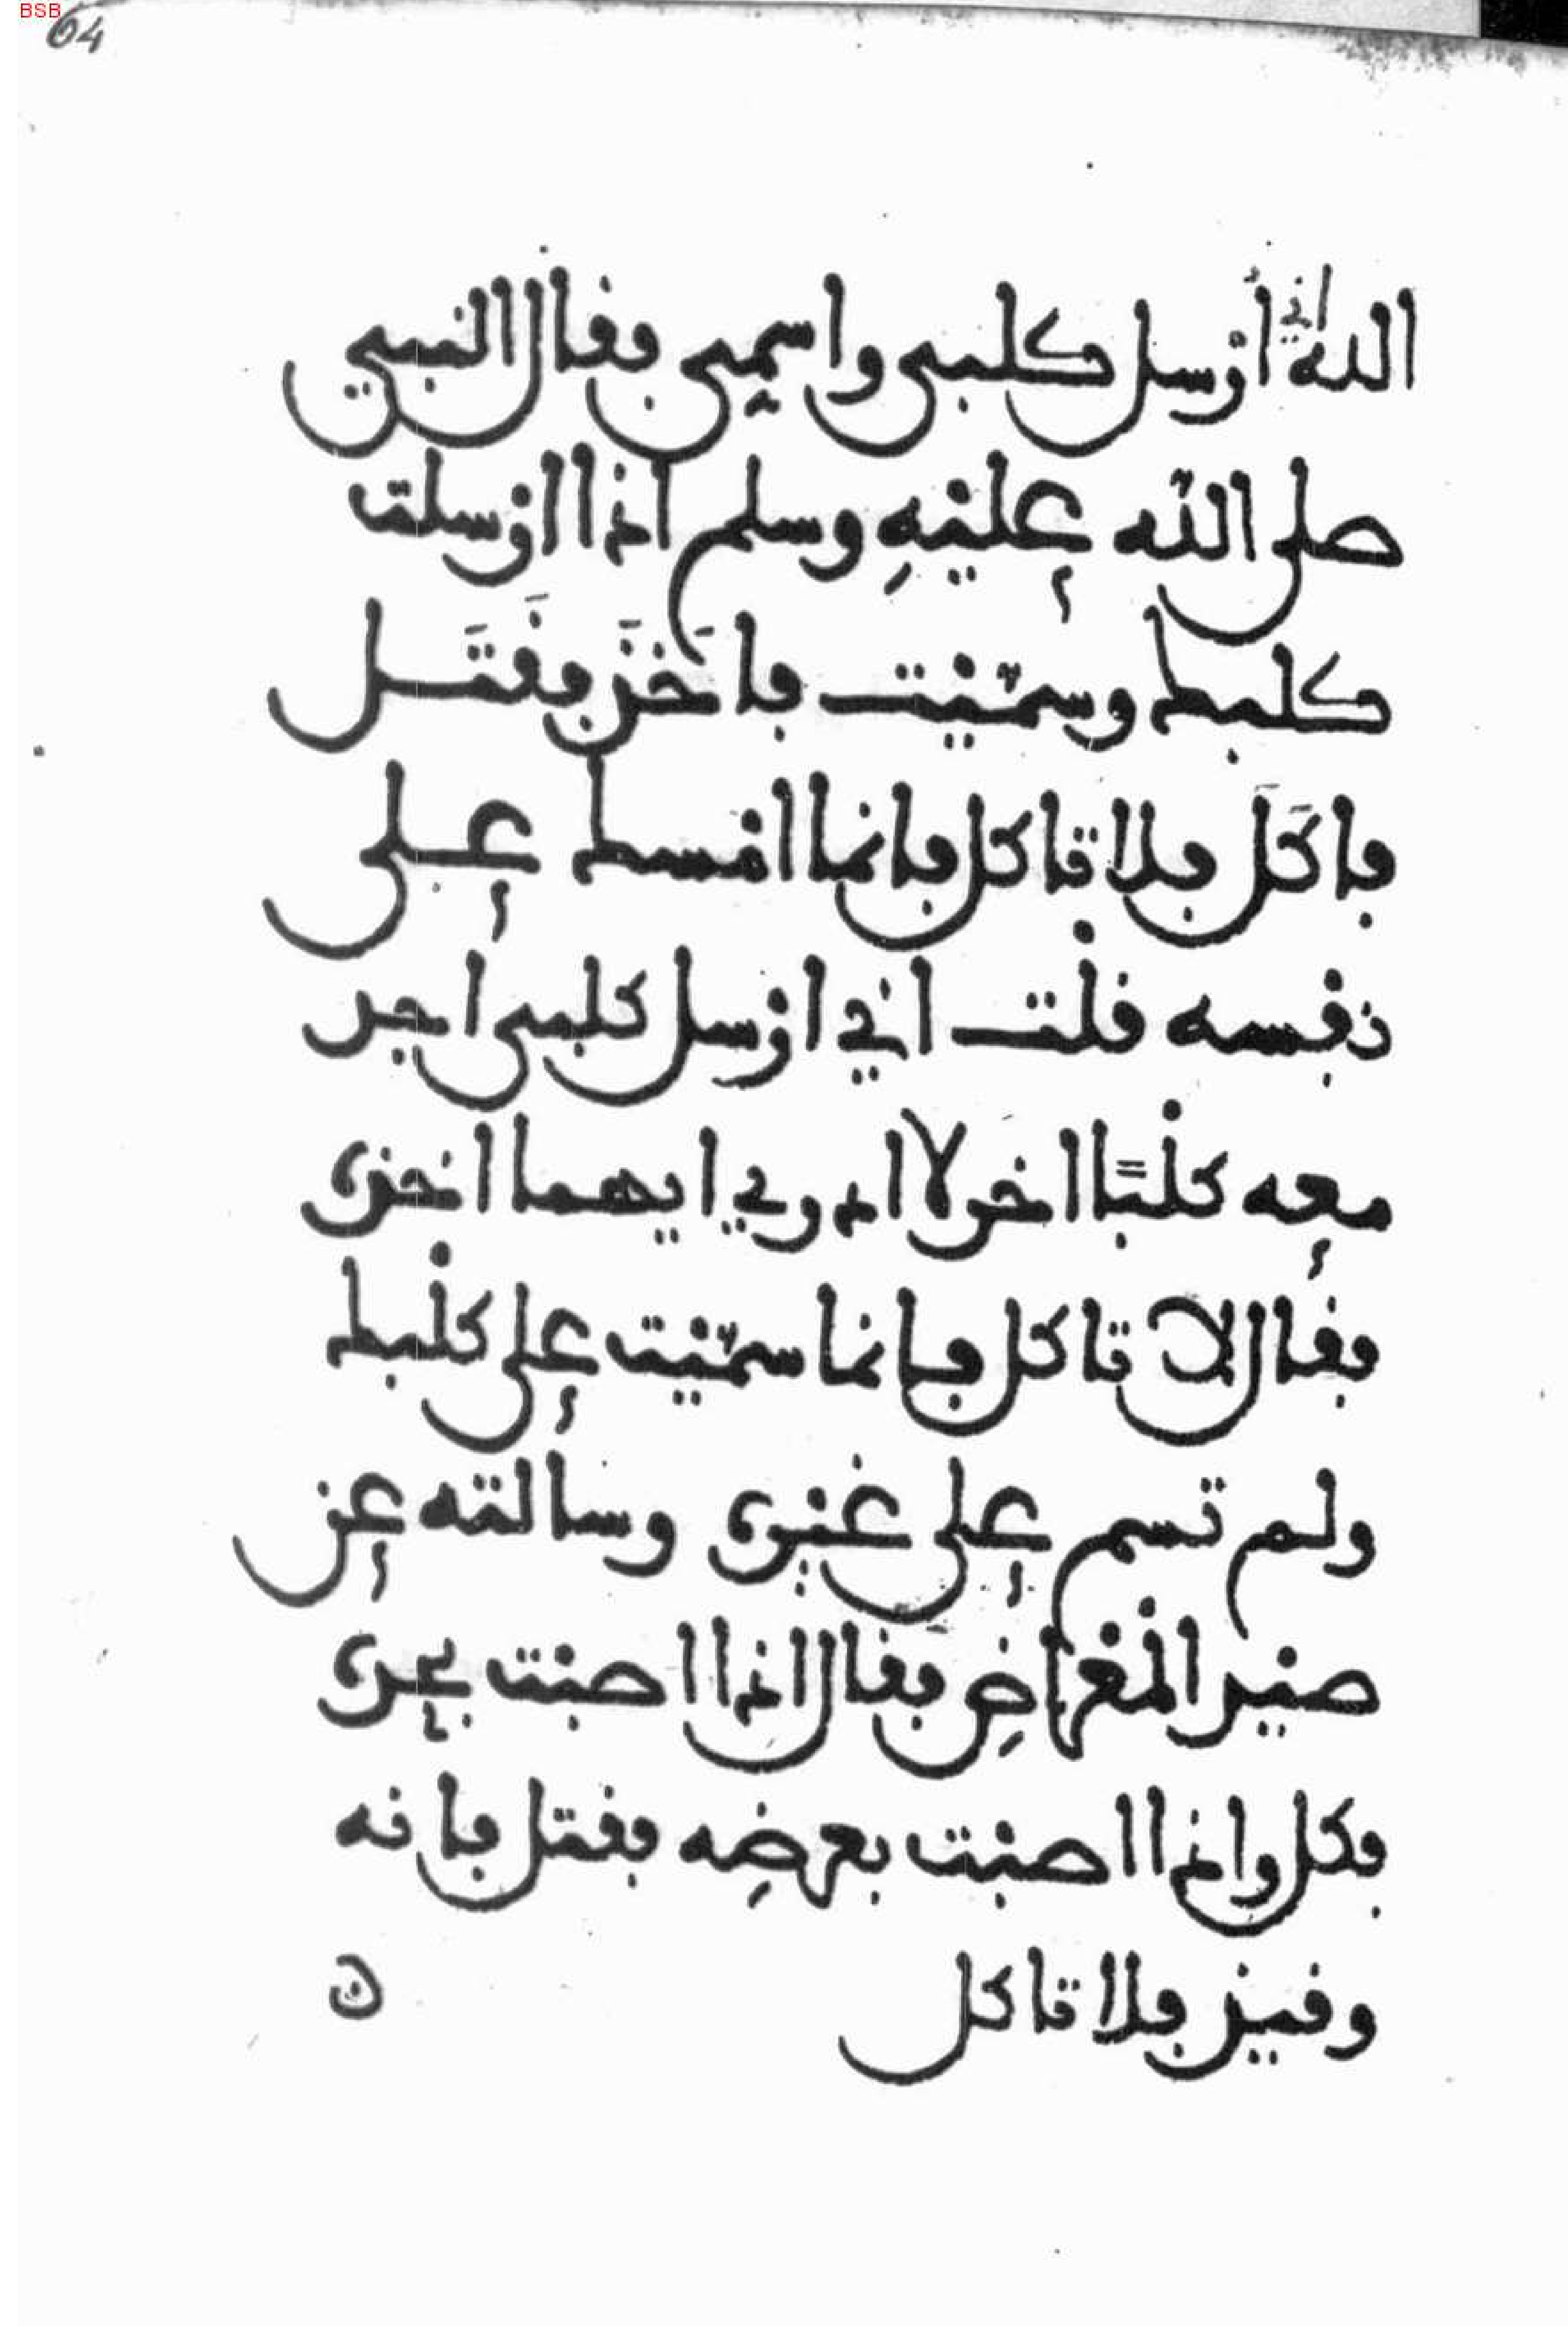 BSB
64
الله اني أرسل كلبي واسمي فقال النبي
صلى الله عليْهِ وسلم اذا ارسلت
كلبك وسمّيْت فاخَذَ فقَتَل
فاكَلَ فلا تاكل فانما امسك على
نفْسه قلْت اني ارْسل كلبي اجد
معه كلْبًا اخر لا ادري ايهما اخذه
فقال لا تاكل فانما سمّيْت على كلْبك
ولم تسم على غيْره وسالته عن
صيْد الْمعْراضِ فقال اذا اصبْت بحده
فكل واذا اصبْت بعرضِه فقتل فانه
وقيذ فلا تاكل